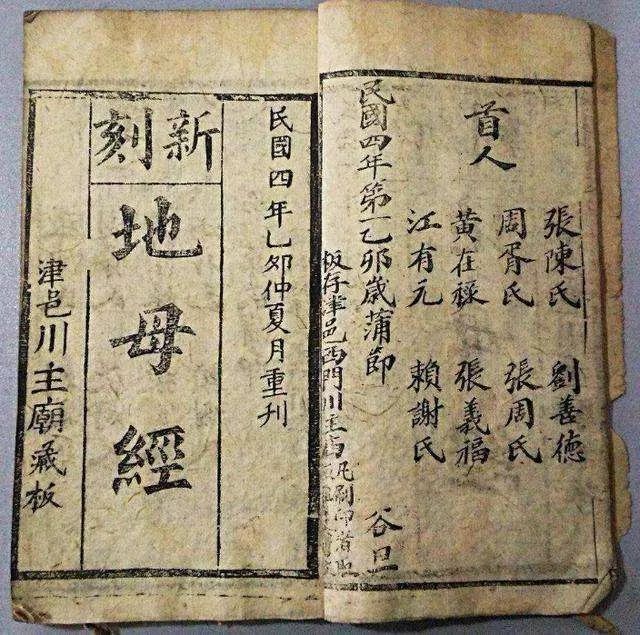 首人
張陳氏 劉善德
周胥氏 張周氏
黃在祿 張義福
江有元 賴謝氏
民國四年第一乙卯歲蒲節 谷旦
板存津邑西門川主廟凡刷印者
民國四年乙卯仲夏月重刊
新刻
地母經
津邑川主廟藏板